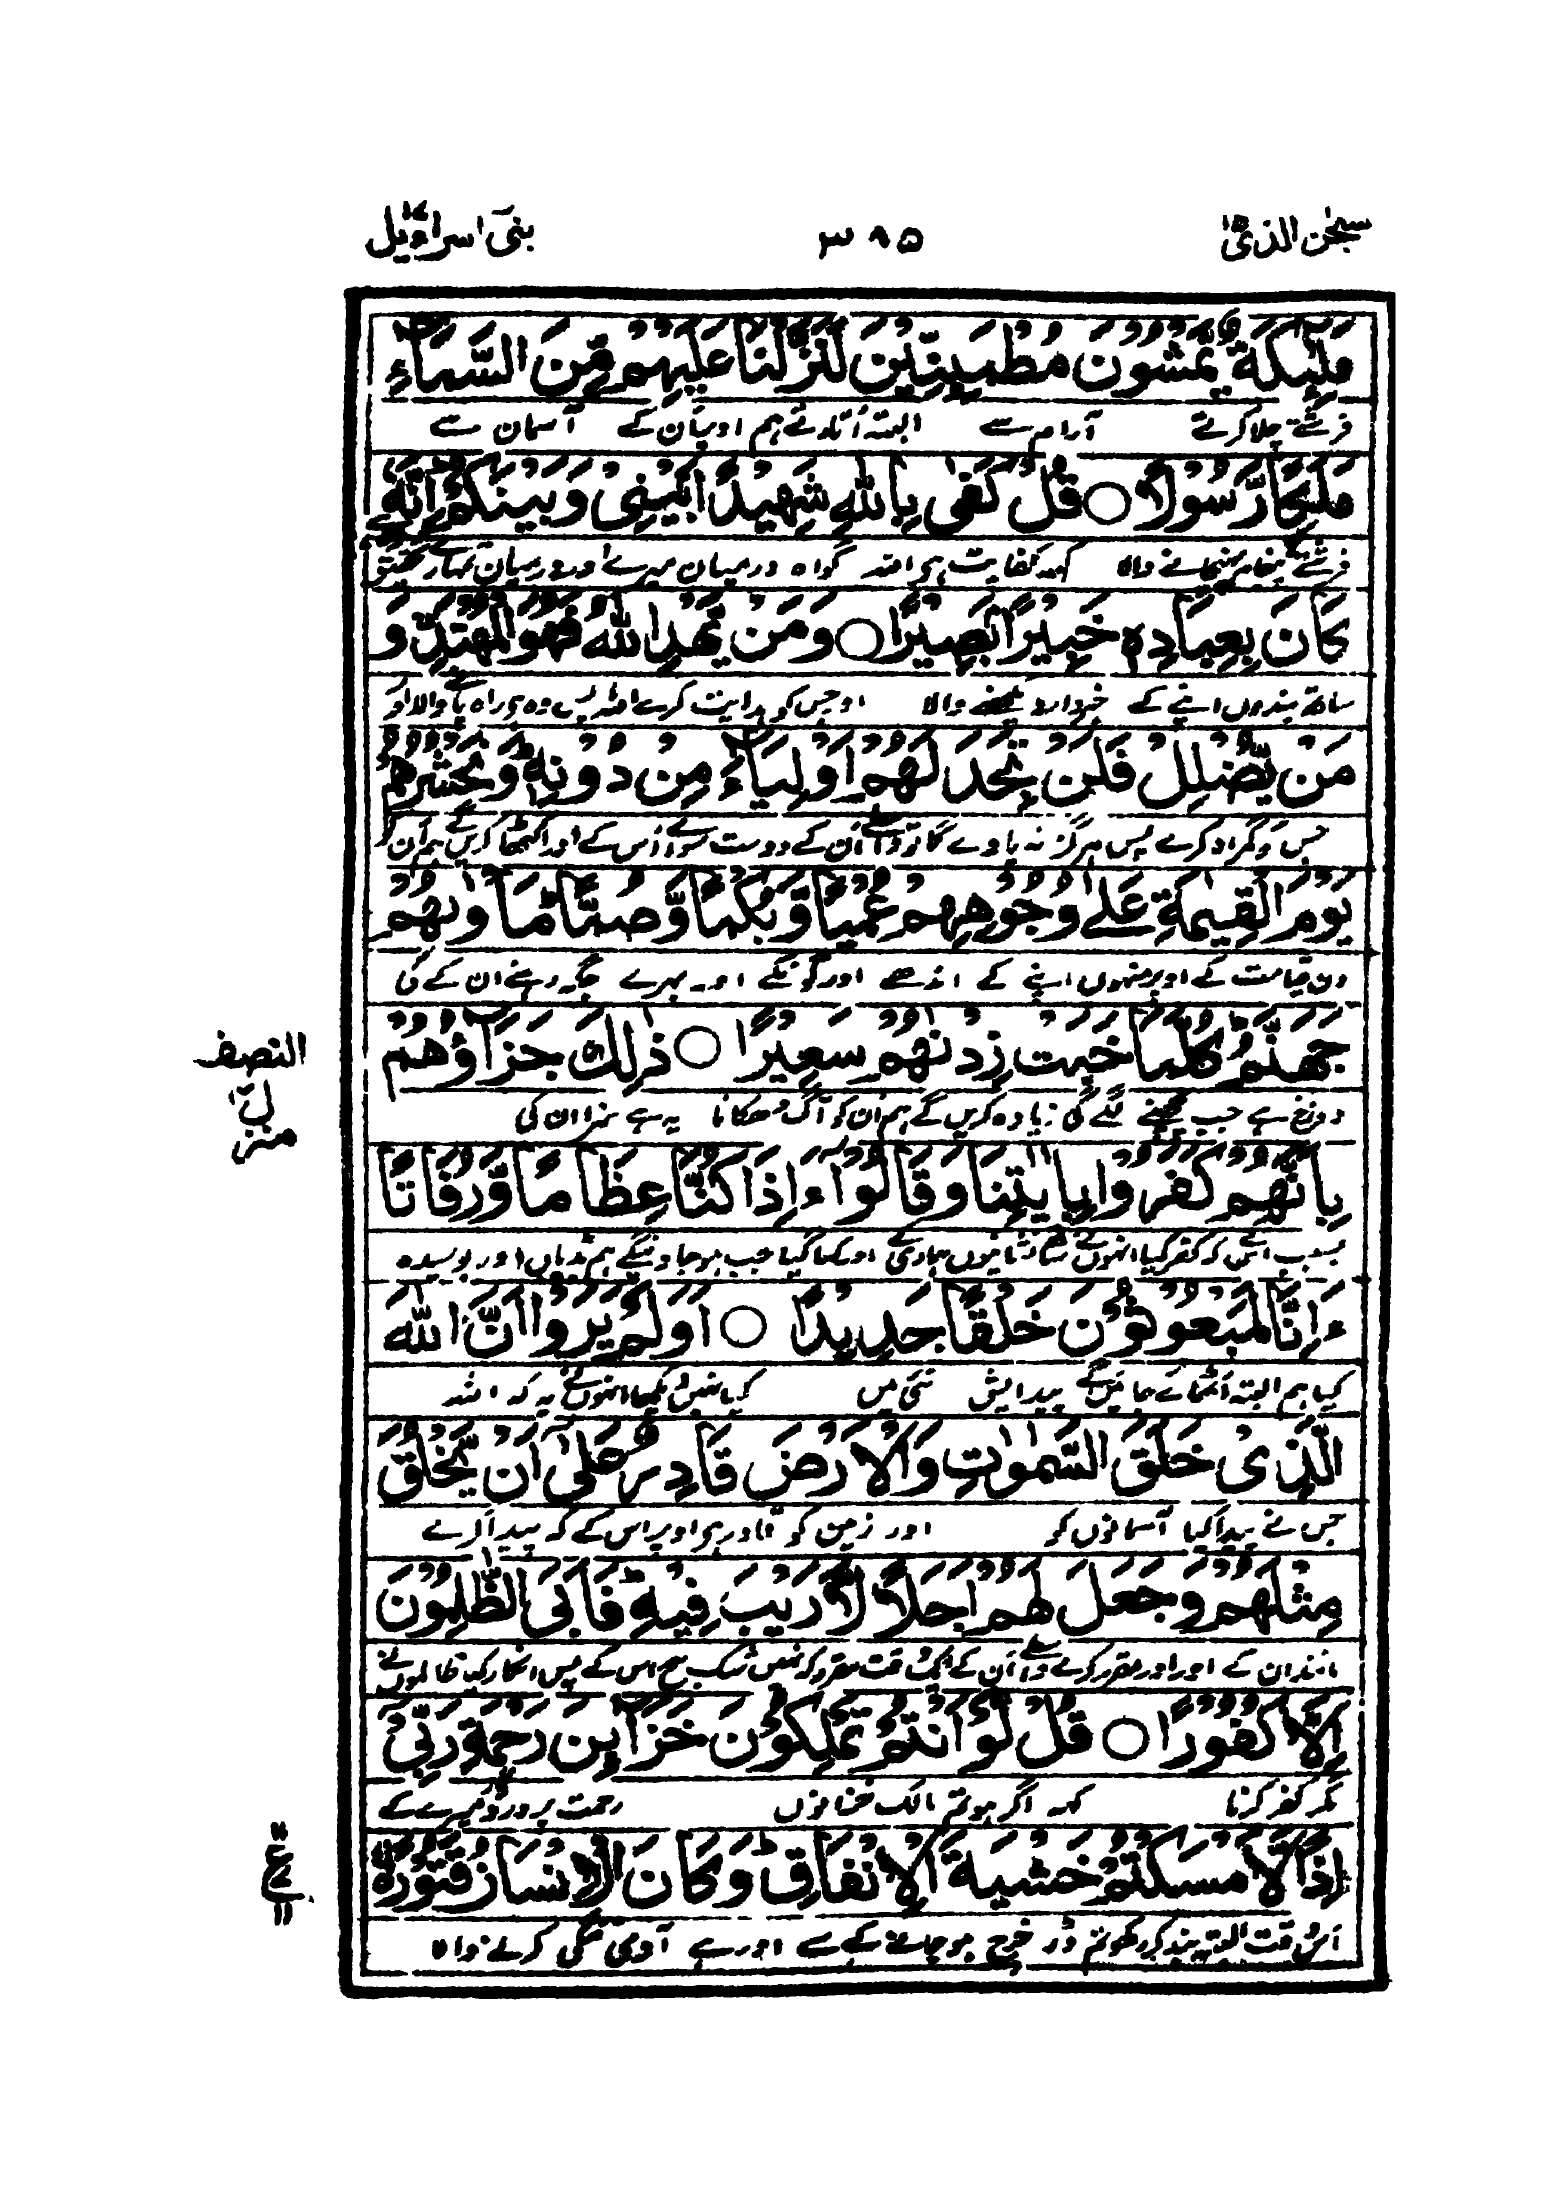 سبحٰن الذیۤ ۳۹۵ بنیۤ اسراءیل
مَلٰٓئِكَةٌ يَّمْشُوْنَ مُطْمَئِنِّيْنَ لَنَزَّلْنَا عَلَيْهِمْ مِّنَ السَّمَآءِ
فرشتے چلا کرتے آرام سے البتہ اُتارتے ہم اوپر اُن کے آسمان سے
مَلَكًا رَّسُوْلًا ○ قُلْ كَفٰى بِاللّٰهِ شَهِيْدًۢا بَيْنِيْ وَبَيْنَكُمْ ؕ اِنَّهٗ
فرشتے پیغام پہنچانے والا کہہ کفایت ہی اللہ گواہ درمیان میرے اور درمیان تمہارے تحقیق وہ
كَانَ بِعِبَادِهٖ خَبِيْرًۢا بَصِيْرًا ○ وَمَنْ يَّهْدِ اللّٰهُ فَهُوَ الْمُهْتَدِ ۚ وَ
ساتھ بندوں اپنے کے خبردار دیکھنے والا اور جس کو ہدایت کرے اللہ پس وہ ہی راہ پانے والا اور
مَنْ يُّضْلِلْ فَلَنْ تَجِدَ لَهُمْ اَوْلِيَآءَ مِنْ دُوْنِهٖ ؕ وَنَحْشُرُهُمْ
جس کو گمراہ کرے پس ہرگز نہ پاوے گا تو واسطے اُن کے دوست سوائے اُس کے اور اکٹھا کریں گے ہم اُن کو
يَوْمَ الْقِيٰمَةِ عَلٰى وُجُوْهِهِمْ عُمْيًا وَّبُكْمًا وَّصُمًّا ؕ مَاْوٰىهُمْ
دن قیامت کے اوپر منہوں اپنے کے اندھے اور گونگے اور بہرے جگہ رہنے ان کے کی
جَهَنَّمُ ؕ كُلَّمَا خَبَتْ زِدْنٰهُمْ سَعِيْرًا ○ ذٰلِكَ جَزَآؤُهُمْ
دوزخ ہے جب بجھنے لگے گی زیادہ کریں گے ہم اُن کو آگ دھکانا یہ ہے سزا ان کی
النصف
منزل
بِاَنَّهُمْ كَفَرُوْا بِاٰيٰتِنَا وَقَالُوْٓا ءَاِذَا كُنَّا عِظَامًا وَّرُفَاتًا
بسبب اس کے کہ کفر کیا انہوں نے ساتھ نشانیوں ہماری کے اور کہا کیا جب ہو جاویں گے ہم ہڈیاں اور بوسیدہ
ءَاِنَّا لَمَبْعُوْثُوْنَ خَلْقًا جَدِيْدًا ○ اَوَلَمْ يَرَوْا اَنَّ اللّٰهَ
کیا ہم البتہ اُٹھائے جائیں گے پیدایش نئی میں کیا نہیں دیکھا انہوں نے یہ کہ اللہ
الَّذِيْ خَلَقَ السَّمٰوٰتِ وَالْاَرْضَ قَادِرٌ عَلٰٓى اَنْ يَّخْلُقَ
جس نے پیدا کیا آسمانوں کو اور زمین کو قادر ہی اوپر اس کے کہ پیدا کرے
مِثْلَهُمْ وَجَعَلَ لَهُمْ اَجَلًا لَّا رَيْبَ فِيْهِ ؕ فَاَبَى الظّٰلِمُوْنَ
مانند ان کے اور اور مقرر کرے واسطے اُن کے ایک وقت مقرر کہ نہیں شک بیچ اس کے پس انکار کیا ظالموں نے
اِلَّا كُفُوْرًا ○ قُلْ لَّوْ اَنْتُمْ تَمْلِكُوْنَ خَزَآئِنَ رَحْمَةِ رَبِّيْٓ
مگر کفر کرنا کہہ اگر ہو تم مالک خزانوں رحمت پروردگار میرے کے
اِذًا لَّاَمْسَكْتُمْ خَشْيَةَ الْاِنْفَاقِ ؕ وَكَانَ الْاِنْسَانُ قَتُوْرًا
اُس وقت البتہ بند کر رکھو تم ڈر خرچ ہو جانے کے سے اور ہے آدمی تنگی کرنے والا
ع
۱۱